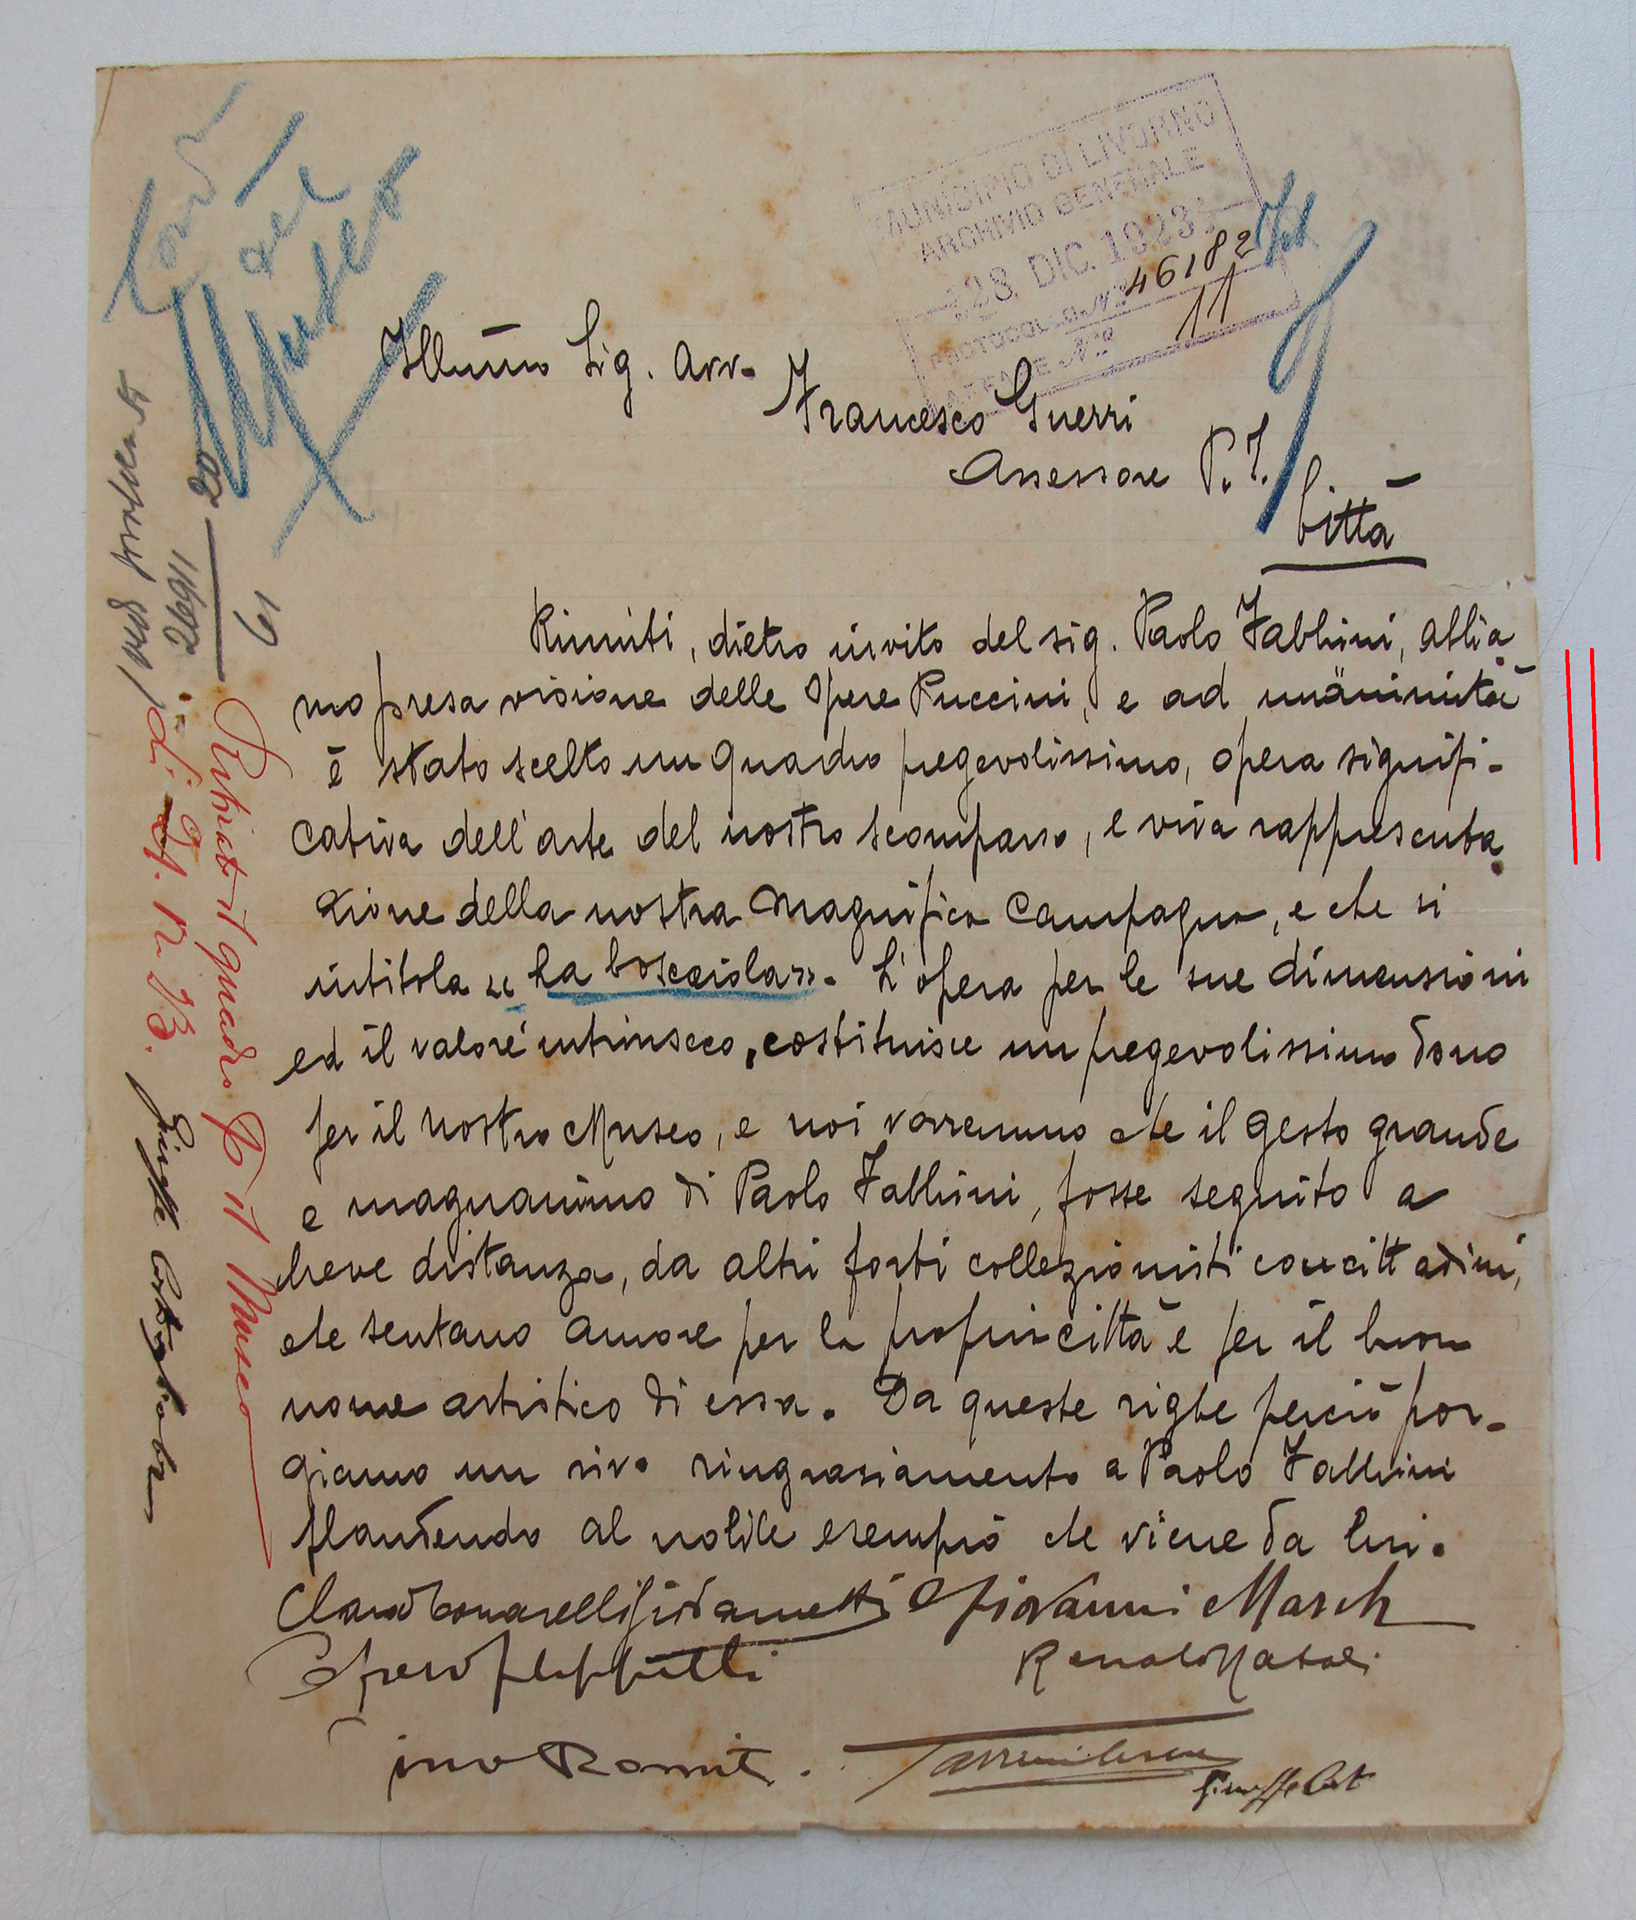 Conser
del
Museo
MUNICIPIO DI LIVORNO
ARCHIVIO GENERALE
28. DIC. 1923
PROTOCOLLO N.º 46182
AFFARE N.º 11
Illumo Sig. Avv.
Francesco Guerri
Assessore P. I.
Città
Riuniti, dietro invito del sig. Paolo Fabbrini, abbia
mo presa visione delle opere Puccini, e ad unanimità
è stato scelto un quadro pregevolissimo, opera signifi-
cativa dell'arte del nostro scomparso, e viva rappresenta
zione della nostra magnifica campagna, e che si
intitola "La boscaiola". L'opera per le sue dimensioni
ed il valore intrinseco, costituisce un pregevolissimo dono
per il nostro Museo, e noi vorremmo che il gesto grande
e magnanimo di Paolo Fabbrini, fosse seguito a
breve distanza, da altri forti collezionisti concittadini,
che sentano amore per la propria città e per il buon
nome artistico di essa. Da queste righe perciò por-
giamo un vivo ringraziamento a Paolo Fabbrini
plaudendo al nobile esempio che viene da lui.
Giovanni March
Renato Natali
Gino Romiti.
vedi protocollo
26911 20
61
Ritirato il quadro p il Museo
li 29. 12. 23.